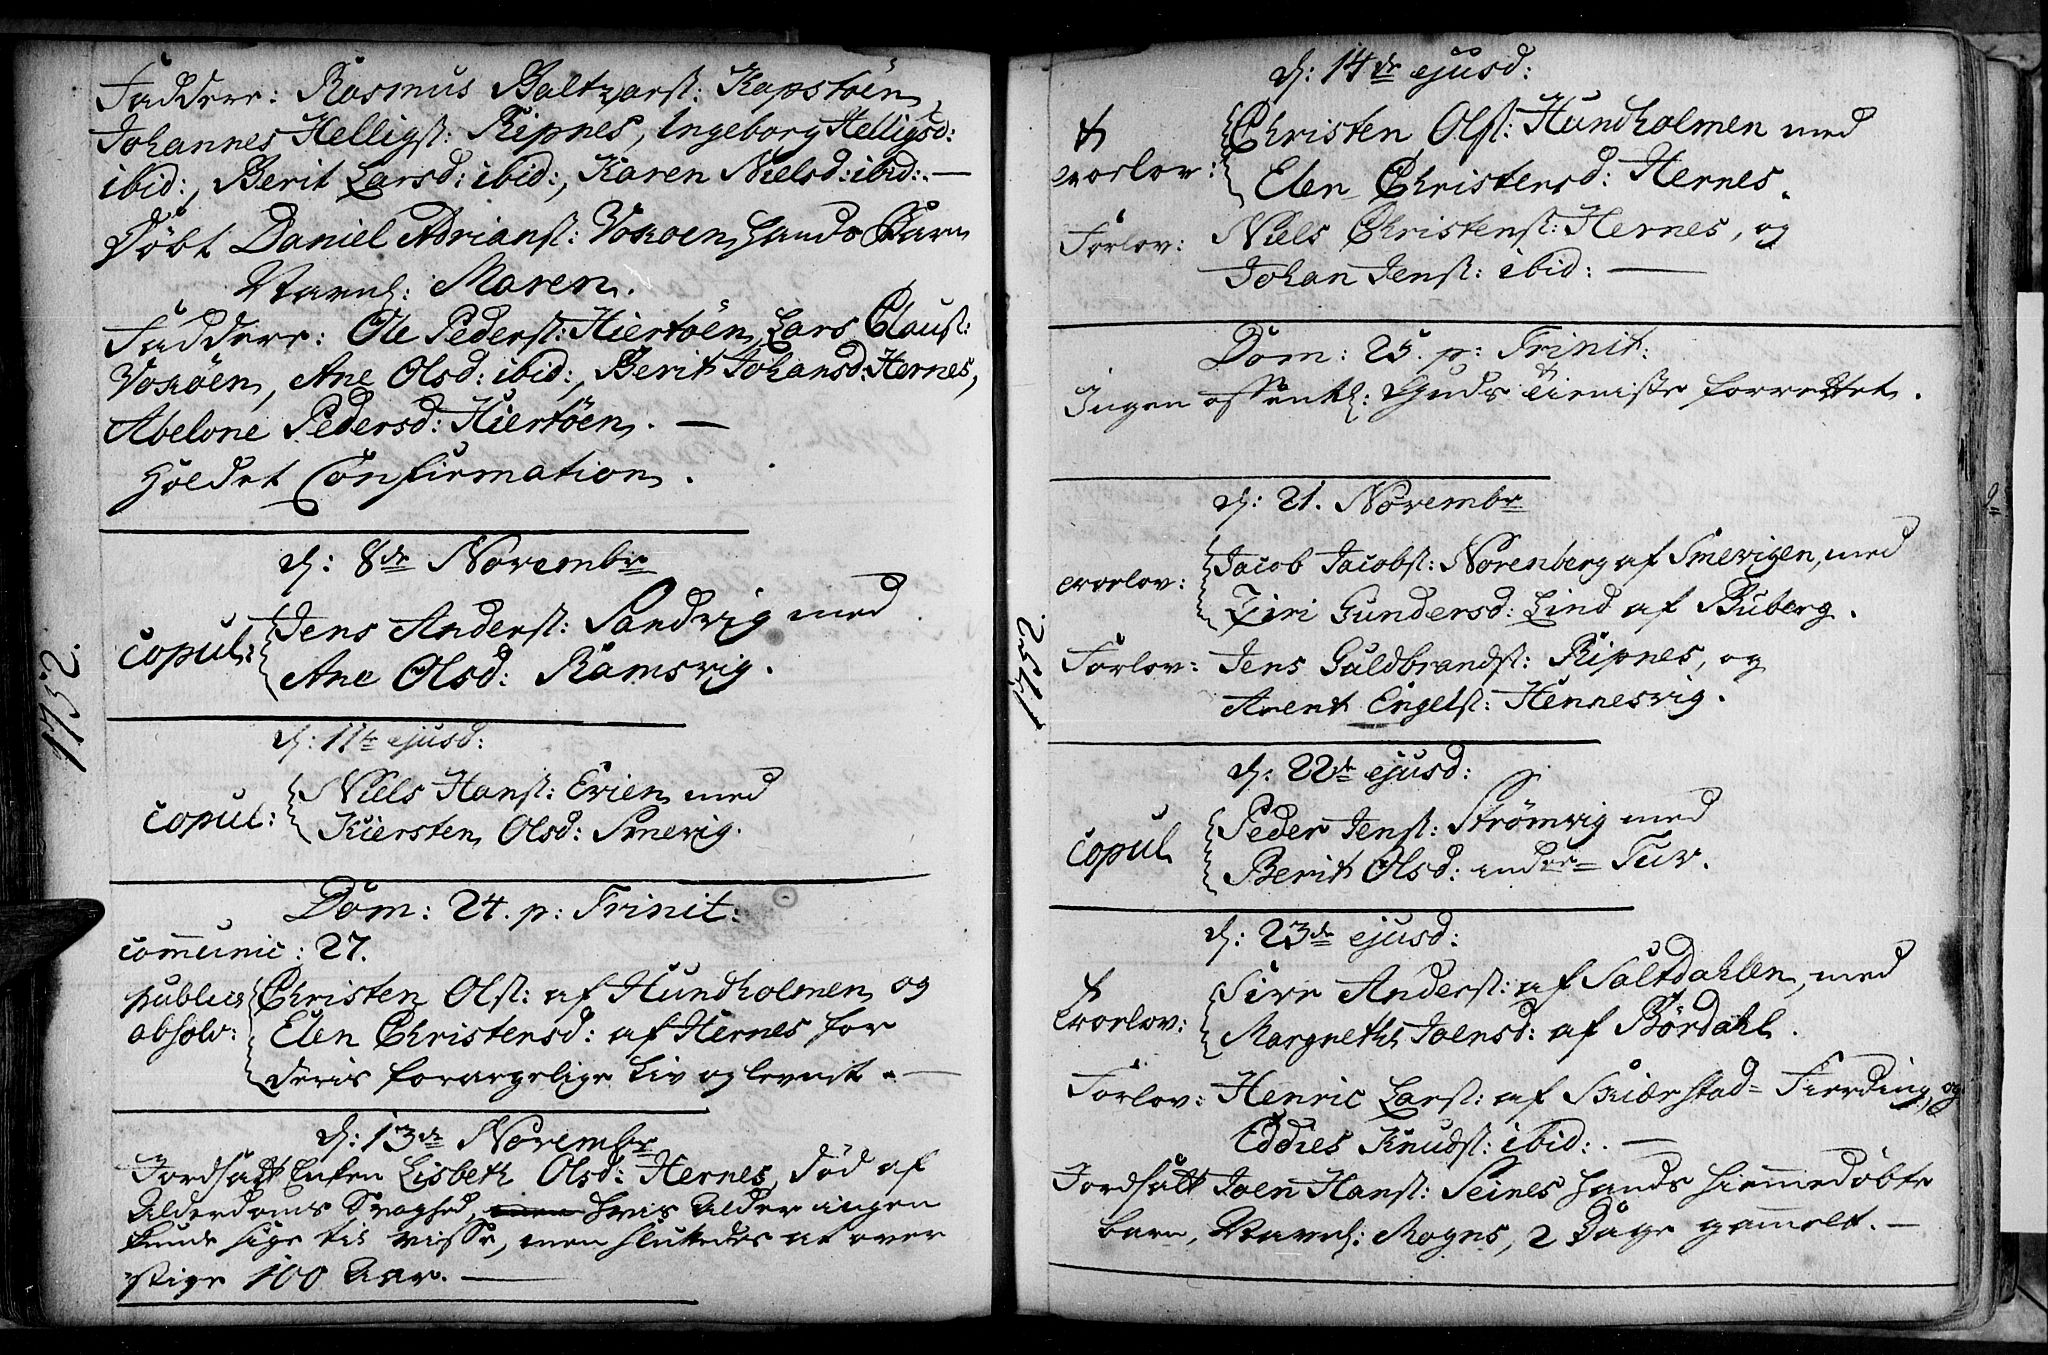 Faddere: Rasmus Baltzarss: Kopstöen,
Johannes Helligss: Ripnes, Ingeborg Helligsd:
ibid:, Berit Larsd: ibid:, Karen Nielsd: ibid:. —
Döbt Daniel Adrianss: Voxöen, hands Barn
Navnl: Maren.
Faddere: Ole Pederss: Hiertöen, Lars Clauss:
Voxöen, Ane Olsd: ibid:, Berit Johansd: Hernes,
Abelone Pedersd: Hiertöen. —
Holdet Confirmation.
1752.
d: 8de Novembr
copul: Jens Anderss: Sandvig med
Ane Olsd: Ramsvig.
d: 11te ejusd:
copul: Niels Hanss: Evien med
Kiersten Olsd: Smevig.
Dom: 24. p: Trinit:
communic: 27.
publice Christen Olss: af Hundholmen og
absolv: Elen Christensd: af Hernes for
deris forargelige Liv og levnet. —
d: 13de Novembr
Jordsatt Enken Lisbeth Olsd: Hernes, död af
Alderdoms Svaghed, hvis Alder ingen
kunde sige til visse, men sluttedes at over
stige 100 Aar. —
d: 14de ejusd:
trorlov: Christen Olss: Hundholmen med
Elen Christensd: Hernes.
Forlov: Niels Christenss: Hernes, og
Johan Jenss: ibid: —
Dom: 25. p: Trinit:
Ingen offentl: Guds tieniste forrettet.
1752.
d: 21. Novembr
trorlov: Jacob Jacobss: Norenberg af Smevigen, med
Ziri Gundersd: Lind af Buberg.
Forlov: Jens Guldbrandss: Ripnes, og
Arent Engelss: Hennesvig.
d: 22de ejusd:
copul Peder Jenss: Strömvig med
Berit Olsd: indre= Tuv.
d: 23de ejusd:
trorlov: Sivr Anderss: af Saltdahlen, med
Margreth Joensd: af Bördahl.
Forlov: Henric Larss: af Skierstad= Fierding, og
Eddies Knudss: ibid: —
Jordsatt Joen Hanss: Seines hands hiemmedöbte
barn, Navnl: Mogns, 2 Dage gammelt. —